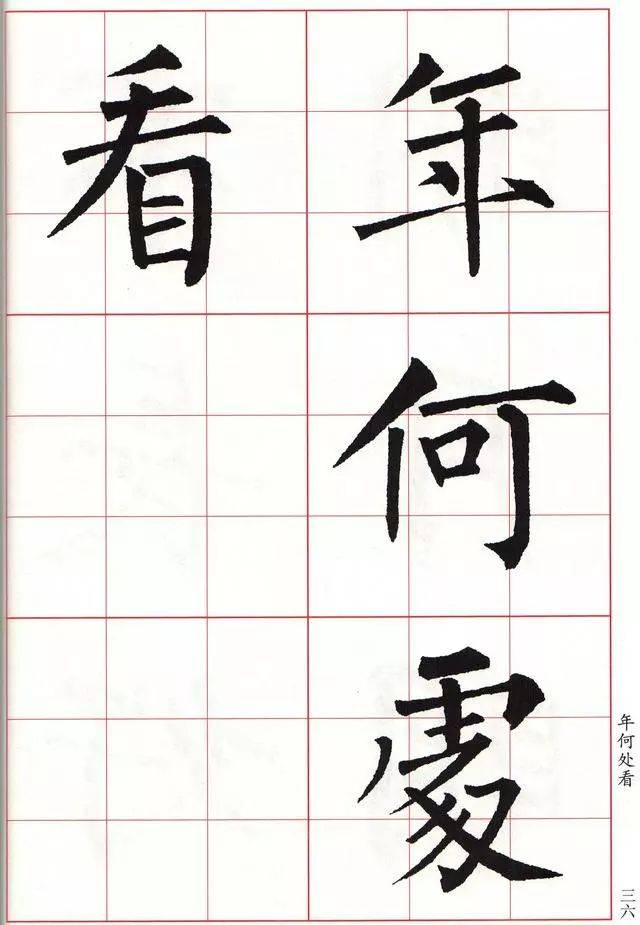 年何處
看
年何处看
三六